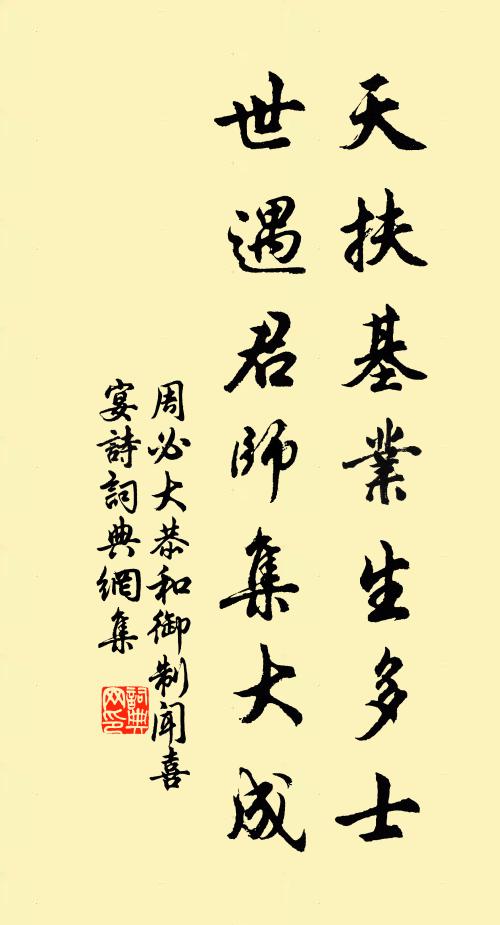 天扶基業生多士
世遇君師集大成
周必大恭和御制聞喜
宴詩詞典網集
詞典网印